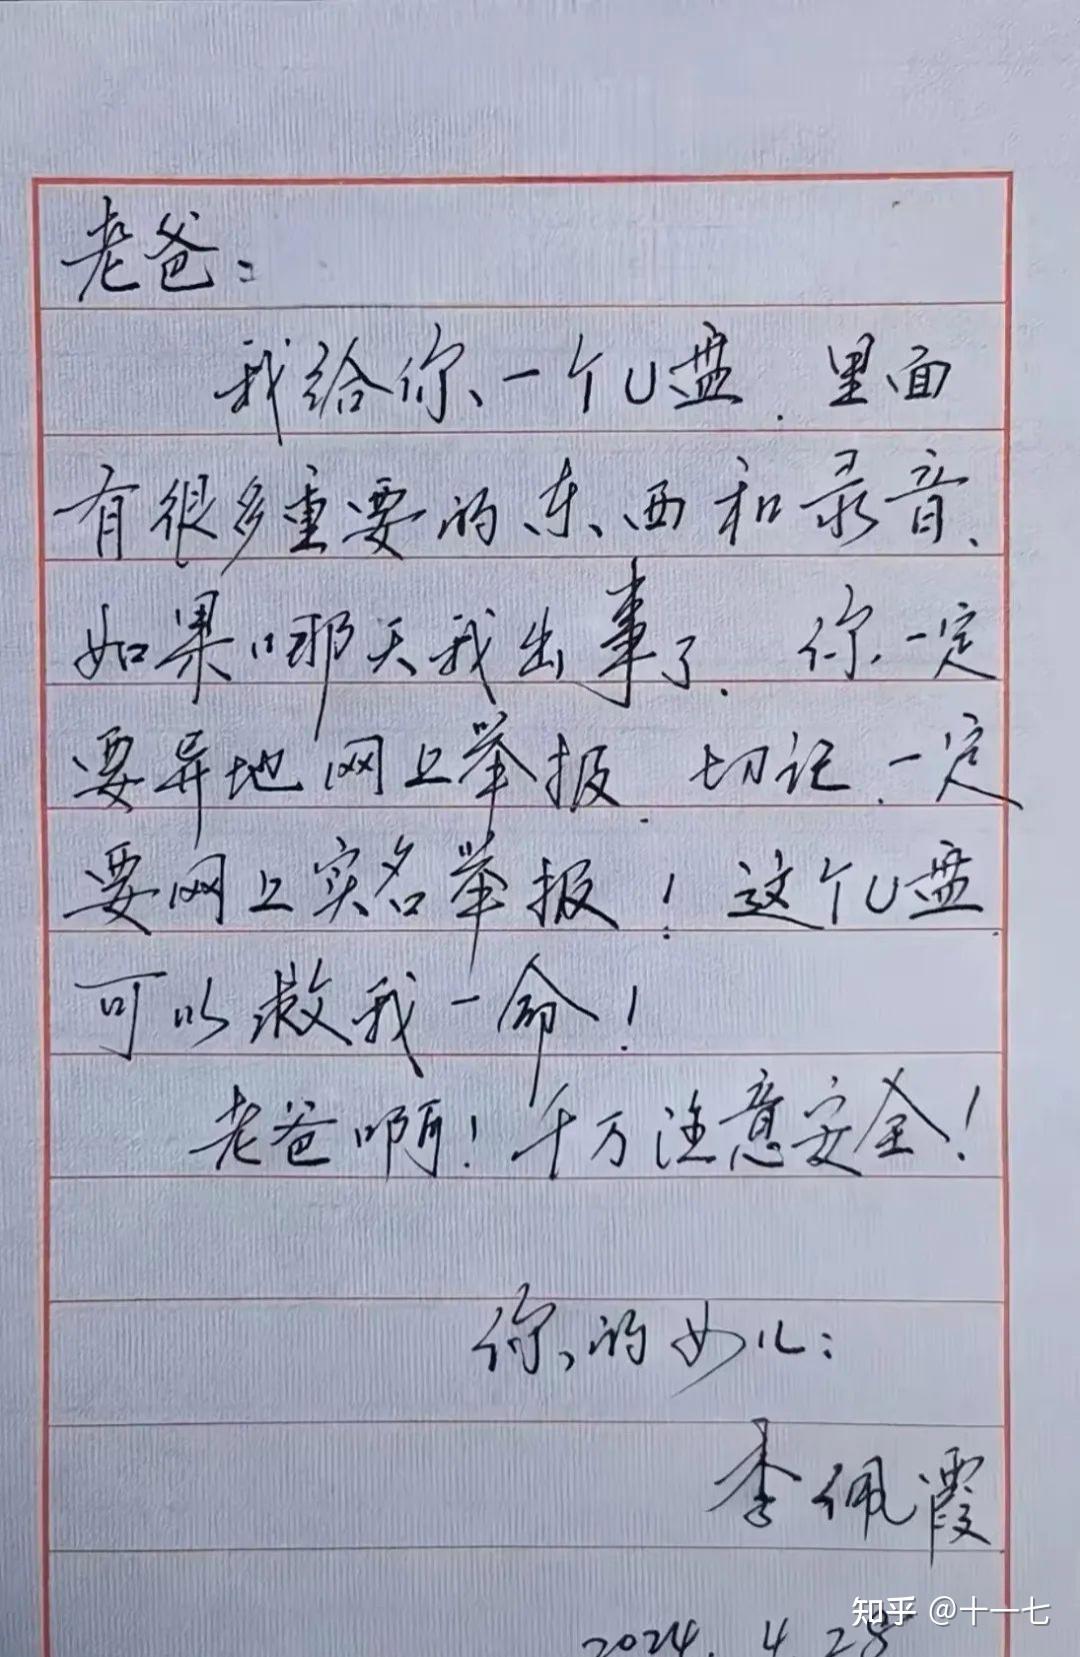 老爸：
我给你一个U盘.里面
有很多重要的东西和录音、
如果哪天我出事了.你一定
要异地网上举报.切记.一定
要网上实名举报！这个U盘.
可以救我一命！
老爸啊！千万注意安全！
你的女儿：
李佩霞
2024.4.28
知乎 @十一七